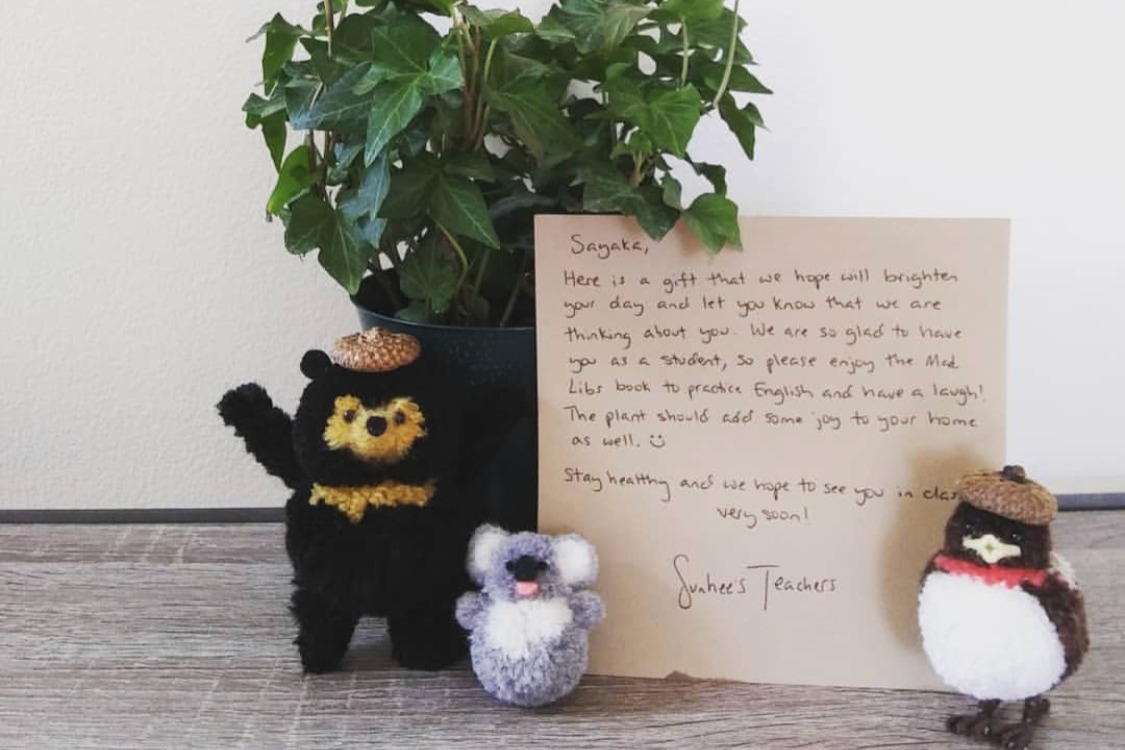 Sayaka,
Here is a gift that we hope will brighten
your day and let you know that we are
thinking about you. We are so glad to have
you as a student, so please enjoy the Mad
Libs book to practice English and have a laugh!
The plant should add some joy to your home
as well. :)
Stay healthy and we hope to see you in clas
very soon!
Sunhee's Teachers